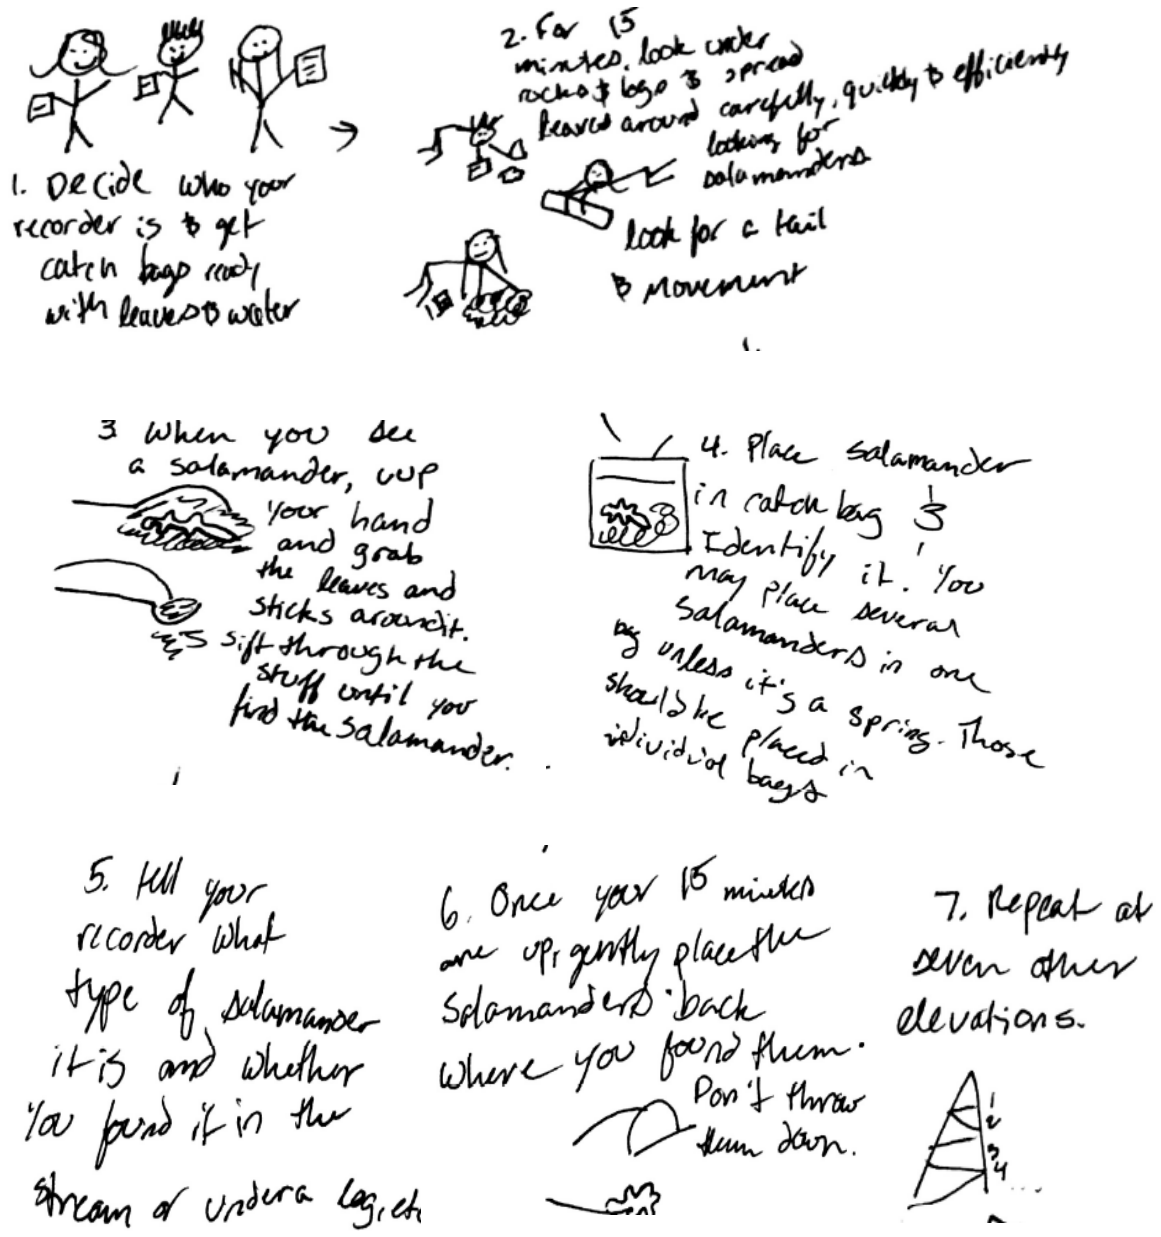 1. Decide who your
recorder is & get
catch bags ready
with leaves & water
2. For 15
minutes, look under
rocks & logs & spread
leaves around carefully, quickly & efficiently
looking for
salamanders
look for a tail
& movement
3. When you see
a salamander, cup
your hand
and grab
the leaves and
sticks around it.
sift through the
stuff until you
find the salamander.
4. Place salamander
in catch bag &
Identify it. You
may place several
salamanders in one
bag unless it's a spring. Those
should be placed in
individual bags
5. tell your
recorder what
type of salamander
it is and whether
you found it in the
stream or under a log, etc
6. Once your 15 minutes
are up, gently place the
salamanders back
where you found them.
Don't throw
them down.
7. Repeat at
seven other
elevations.
1
2
3
4 ....